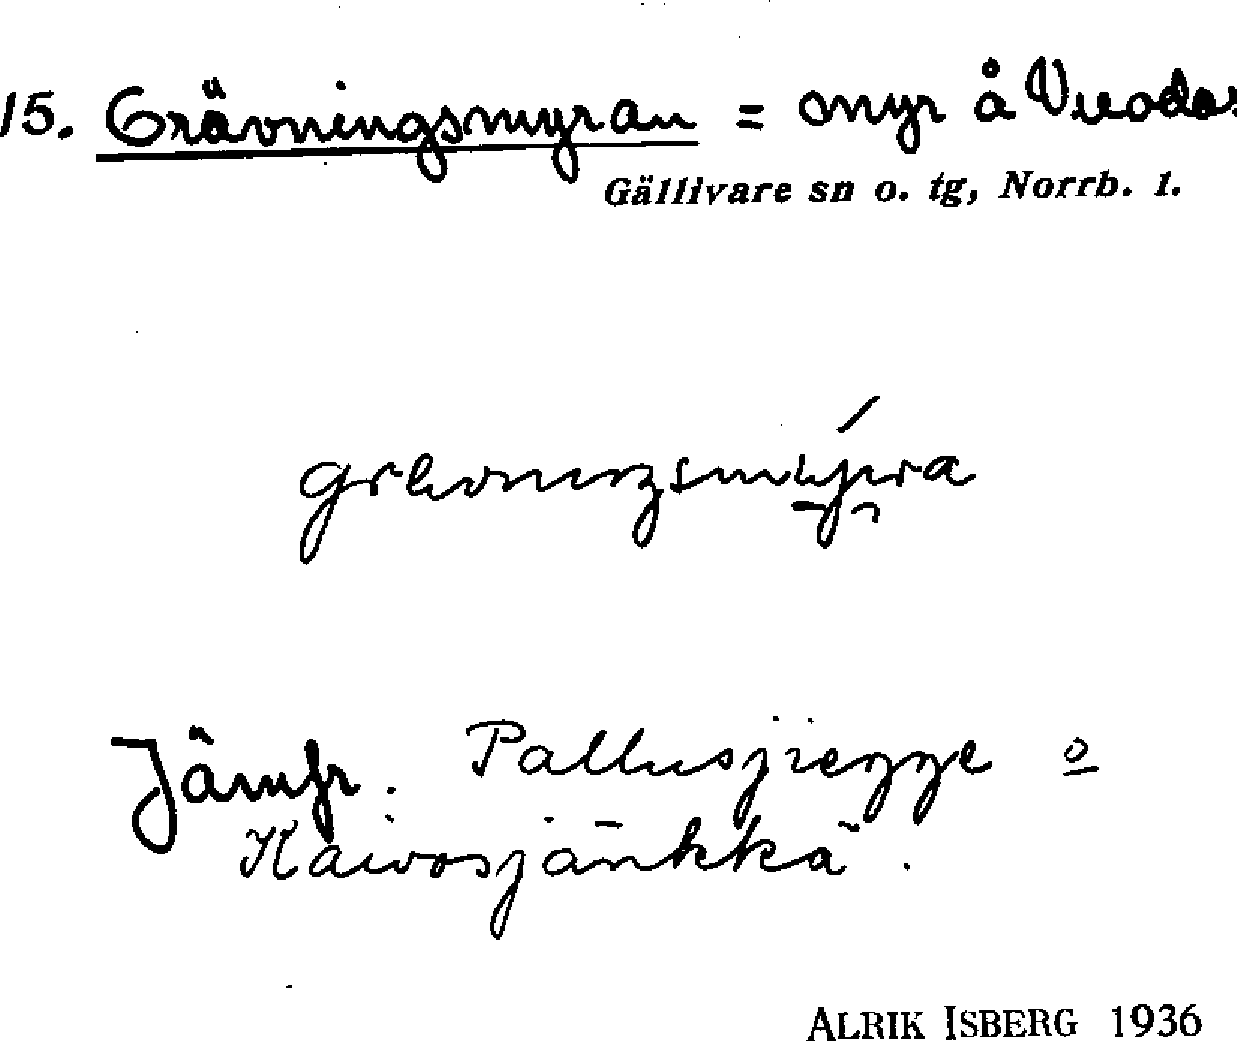 15. Grävningsmyran = myr å
Gällivare sn o. tg, Norrb. l.
Jämfr. Pallusjiegge o
Kaivosjänkkä.
ALRIK ISBERG 1936